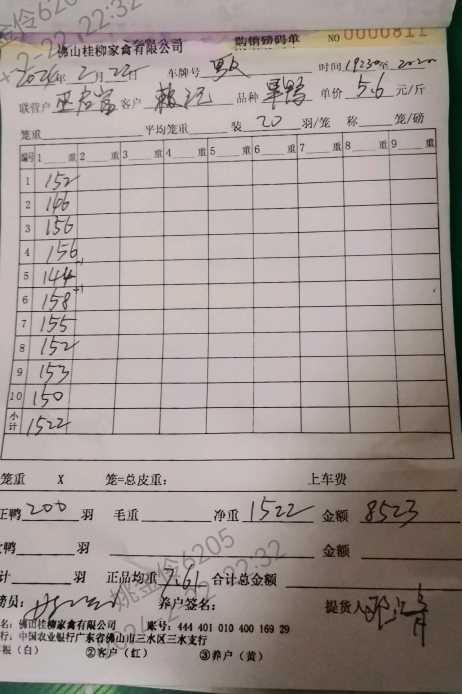 佛山桂柳家禽有限公司 购销磅码单 NO 0000811
2024年2月22日 车牌号 时间1923 2022
联营户 客户 品种 单价5.6元/斤
笼重 平均笼重 装20羽/笼 称 笼/磅
编号 1 重 2 重 3 重 4 重 5 重 6 重 7 重 8 重 9 重
1 152
2 146
3 156
4 156
5 144 +1
6 158 +1
7 155
8 152
9 153
10 150
小计 1522
笼重 X 笼=总皮重: 上车费
正鸭200羽 毛重 净重1522 金额8523
鸭 羽 金额
计 羽 正品均重7.61 合计总金额
磅员: 养户签名: 提货人
名: 佛山桂柳家禽有限公司 账号: 444 401 010 400 169 29
行: 中国农业银行广东省佛山市三水区三水支行
(白) ②客户(红) ③养户(黄)
姚金伶6205
22:32